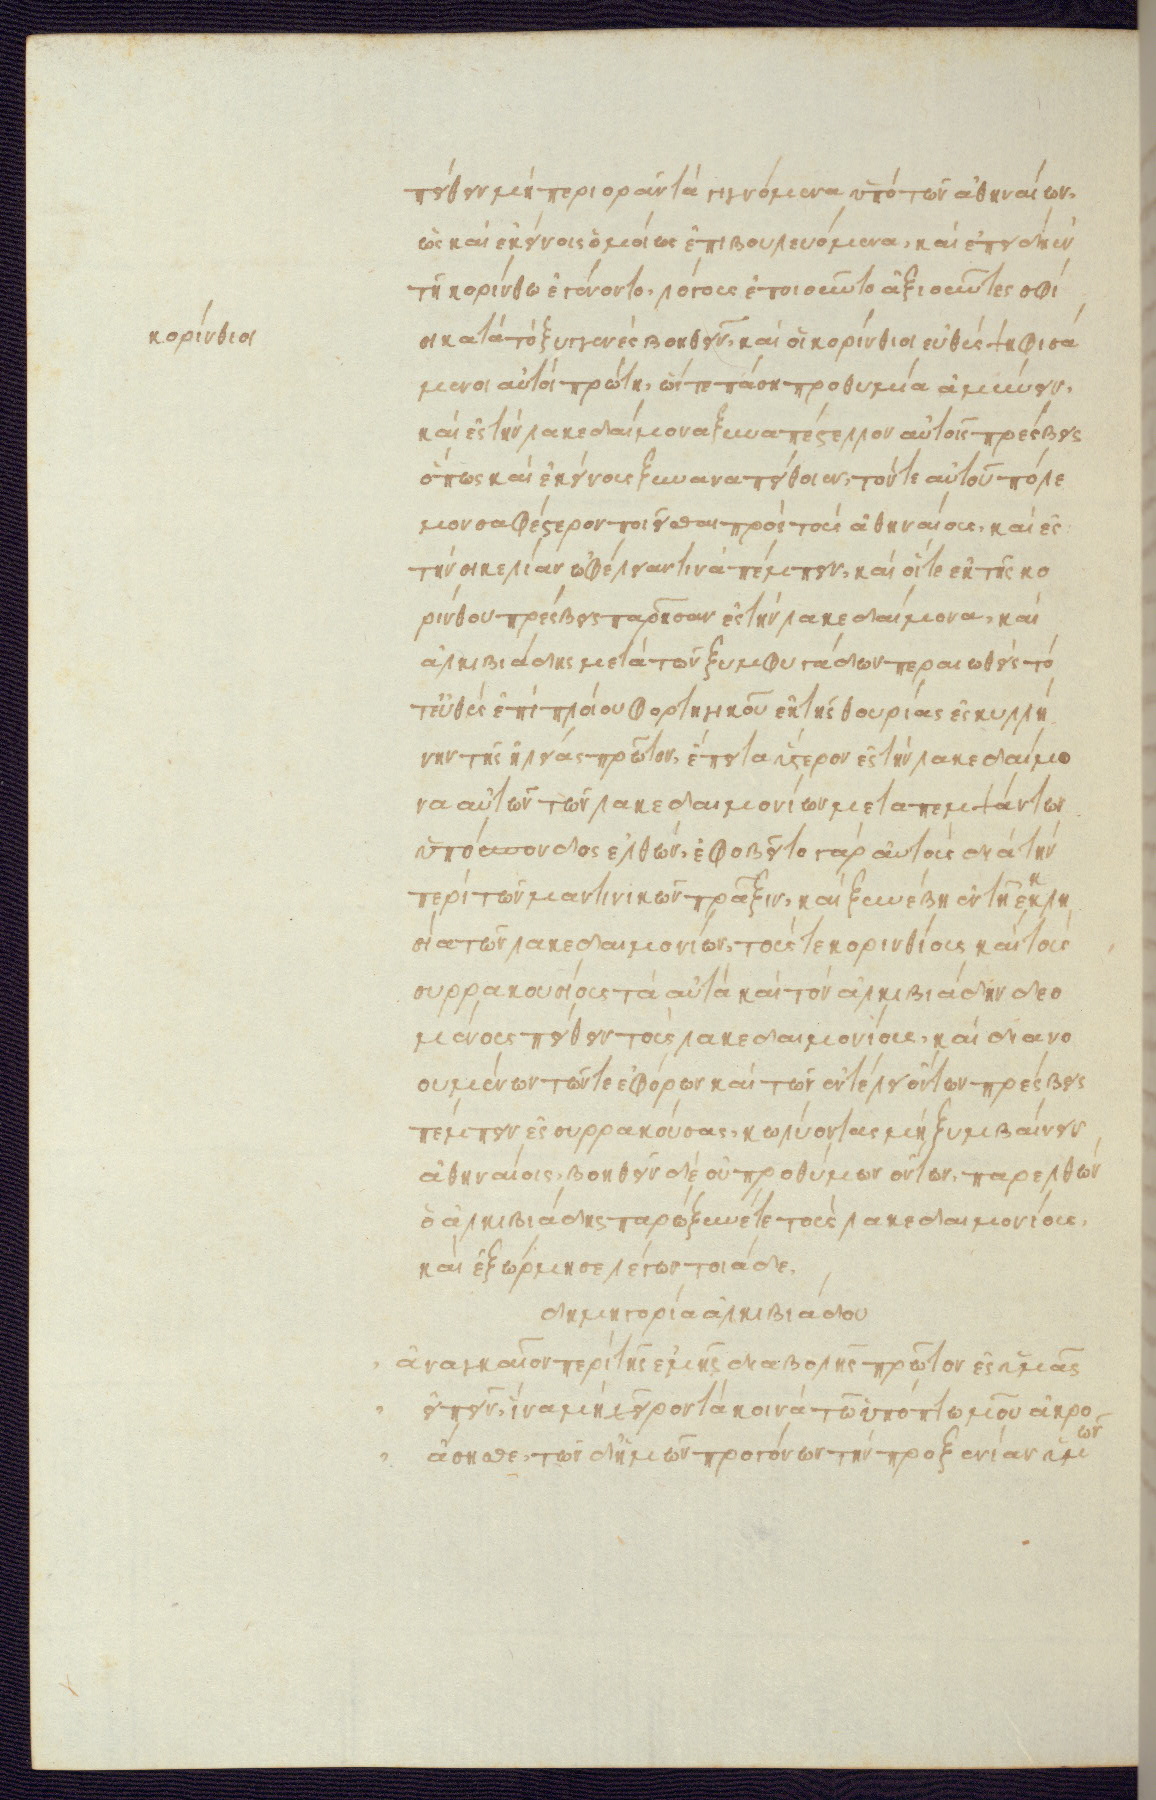 πείθειν μὴ περιορᾶν τὰ γιγνόμενα ὑπὸ τῶν ἀθηναίων,
ὡς καὶ ἐκείνοις ὁμοίως ἐπιβουλευόμενα, καὶ ἐπειδὴ ἐν
τῇ κορίνθω ἐγένοντο, λόγους ἐποιοῦντο ἀξιοῦντες σφί
κορίνθιοι
σι κατὰ τὸ ξυγγενὲς βοηθεῖν, καὶ οἱ κορίνθιοι εὐθὺς ψηφισά
μενοι αὐτοὶ πρῶτοι, ὥστε πάσῃ προθυμία ἀμύνειν,
καὶ ἐς τὴν λακεδαίμονα ξυναπέστελλον αὐτοῖς πρέσβεις
ὅπως καὶ ἐκείνους ξυναναπείθοιεν, τόν τε αὐτοῦ πόλε
μον σαφέστερον ποιεῖσθαι πρὸς τοὺς ἀθηναίους, καὶ ἐς
τὴν σικελίαν ὠφέλειάν τινα πέμπειν, καὶ οἵ τε ἐκ τῆς κο
ρίνθου πρέσβεις παρῆσαν ἐς τὴν λακεδαίμονα, καὶ
ἀλκιβιάδης μετὰ τῶν ξυμφυγάδων περαιωθεὶς τό
τ' εὐθὺς ἐπὶ πλοίου φορτηγικοῦ ἐκ τῆς θουρίας ἐς κυλλή
νην τῆς ἠλείας πρῶτον, ἔπειτα ὕστερον ἐς τὴν λακεδαίμο
να αὐτῶν τῶν λακεδαιμονίων μεταπεμψάντων
ὑπόσπονδος ἐλθών, ἐφοβεῖτο γὰρ αὐτοὺς διὰ τὴν
περὶ τῶν μαντινικῶν πρᾶξιν, καὶ ξυνέβη ἐν τῇ ἐκκλη
σία τῶν λακεδαιμονίων, τούς τε κορινθίους καὶ τοὺς
συρρακουσίους τὰ αὐτὰ καὶ τὸν ἀλκιβιάδην δεο
μένους πείθειν τοὺς λακεδαιμονίους, καὶ διανο
ουμένων τῶν τε ἐφόρων καὶ τῶν ἐν τέλει ὄντων πρέσβεις
πέμπειν ἐς συρρακούσας, κωλύοντας μὴ ξυμβαίνειν
ἀθηναίοις, βοηθεῖν δὲ οὐ προθύμων ὄντων, παρελθὼν
ὁ ἀλκιβιάδης παρώξυνέ τε τοὺς λακεδαιμονίους,
καὶ ἐξώρμησε λέγων τοιάδε.
δημηγορία ἀλκιβιάδου
ἀναγκαῖον περὶ τῆς ἐμῆς διαβολῆς πρῶτον ἐς ὑμᾶς
εἰπεῖν, ἵνα μὴ χεῖρον τὰ κοινὰ τῶ ὑπόπτω μου ἀκρο
άσησθε, τῶν δ' ἡμῶν προγόνων τὴν προξενίαν ὑμῶν